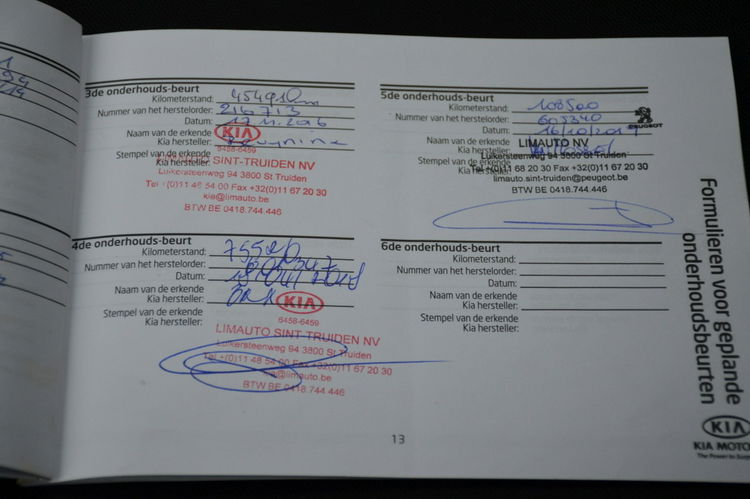 3de onderhouds-beurt
Kilometerstand:
Nummer van het herstelorder: 216713
Datum: 17.11.2016
Naam van de erkende
Kia hersteller: KIA
6458-6459
Stempel van de erkende
Kia hersteller:
LIMAUTO SINT-TRUIDEN NV
Luikersteenweg 94 3800 St Truiden
Tel +(0)11 48 54 00 Fax +32(0)11 67 20 30
kia@limauto.be
BTW BE 0418.744.446
4de onderhouds-beurt
Kilometerstand:
Nummer van het herstelorder:
Datum:
Naam van de erkende
Kia hersteller: KIA
6458-6459
Stempel van de erkende
Kia hersteller:
LIMAUTO SINT-TRUIDEN NV
Luikersteenweg 94 3800 St Truiden
Tel +(0)11 48 54 00 Fax +32(0)11 67 20 30
kia@limauto.be
BTW BE 0418.744.446
5de onderhouds-beurt
Kilometerstand: 108500
Nummer van het herstelorder: 605340
PEUGEOT
Datum: 16/10/2019
Naam van de erkende
Kia hersteller:
LIMAUTO NV
Luikersteenweg 94 3800 St Truiden
Stempel van de erkende
Kia hersteller:
Tel +(0)11 68 20 30 Fax +32(0)11 67 20 30
limauto.sint-truiden@peugeot.be
BTW BE 0418.744.446
6de onderhouds-beurt
Kilometerstand:
Nummer van het herstelorder:
Datum:
Naam van de erkende
Kia hersteller:
Stempel van de erkende
Kia hersteller:
13
Formulieren voor geplande
onderhoudsbeurten
KIA
KIA MOTO
The Power to Surp